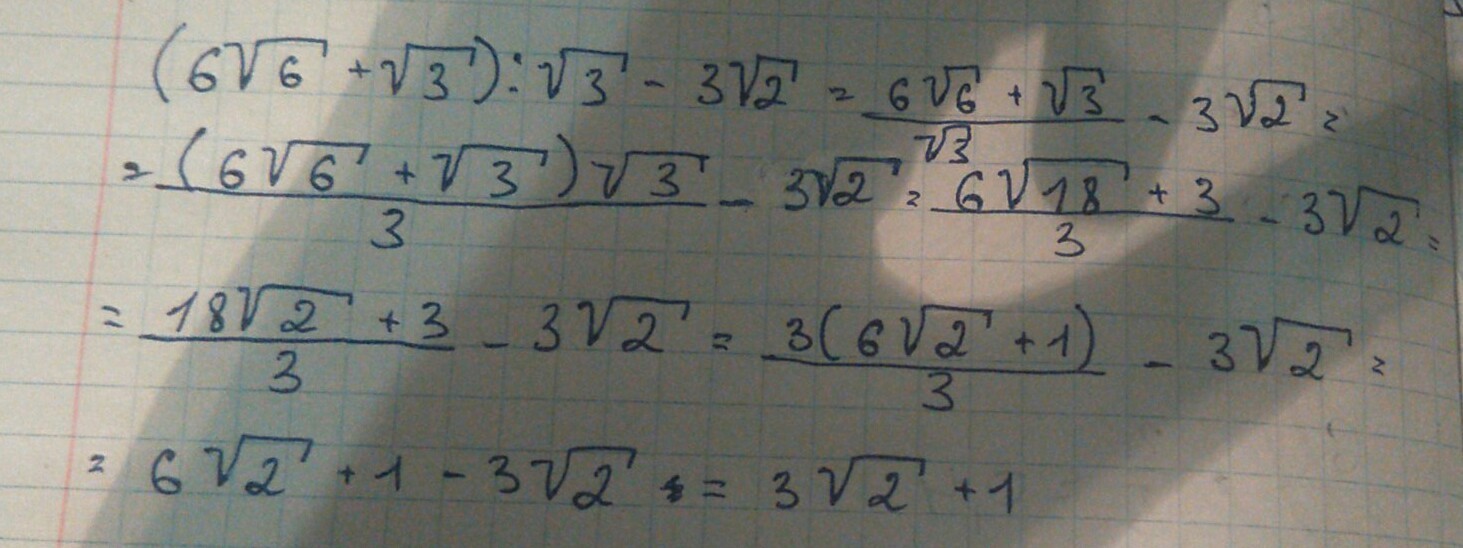 (6√6 + √3) : √3 - 3√2 = (6√6 + √3)/√3 - 3√2 =
= ((6√6 + √3)√3)/3 - 3√2 = (6√18 + 3)/3 - 3√2 =
= (18√2 + 3)/3 - 3√2 = (3(6√2 + 1))/3 - 3√2 =
= 6√2 + 1 - 3√2 = 3√2 + 1